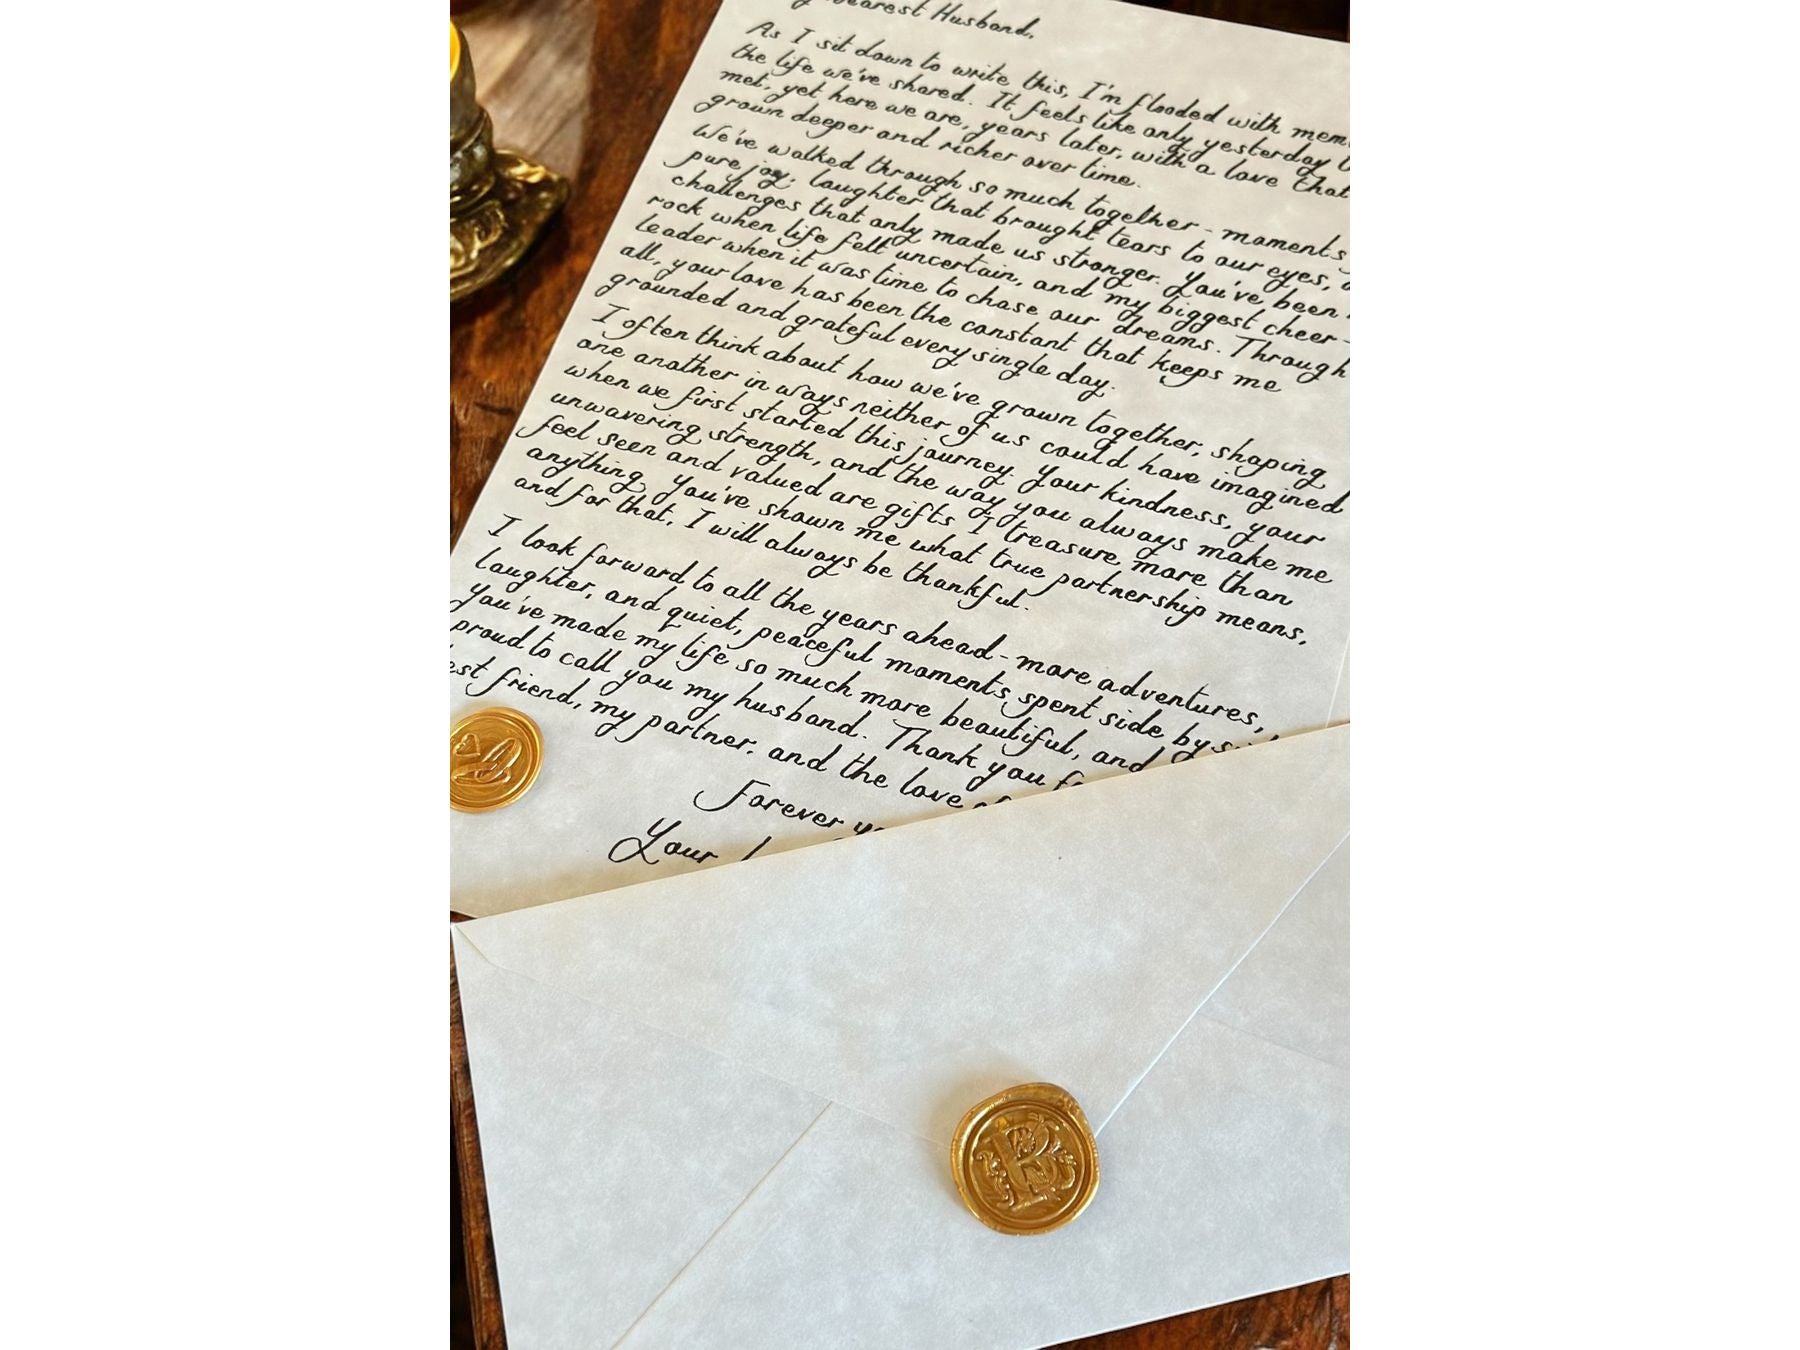 Dearest Husband,
As I sit down to write this, I'm flooded with mem
the life we've shared. It feels like only yesterday
met, yet here we are, years later, with a love that
grown deeper and richer over time.
We've walked through so much together - moments
pure joy, laughter that brought tears to our eyes,
challenges that only made us stronger. You've been
rock when life felt uncertain, and my biggest cheer-
leader when it was time to chase our dreams. Through
all, your love has been the constant that keeps me
grounded and grateful every single day.
I often think about how we've grown together, shaping
one another in ways neither of us could have imagined
when we first started this journey. Your kindness, your
unwavering strength, and the way you always make me
feel seen and valued are gifts I treasure more than
anything. You've shown me what true partnership means,
and for that, I will always be thankful.
I look forward to all the years ahead - more adventures,
laughter, and quiet, peaceful moments spent side by
You've made my life so much more beautiful, and
proud to call you my husband. Thank you
est friend, my partner, and the love
Forever
Your
B